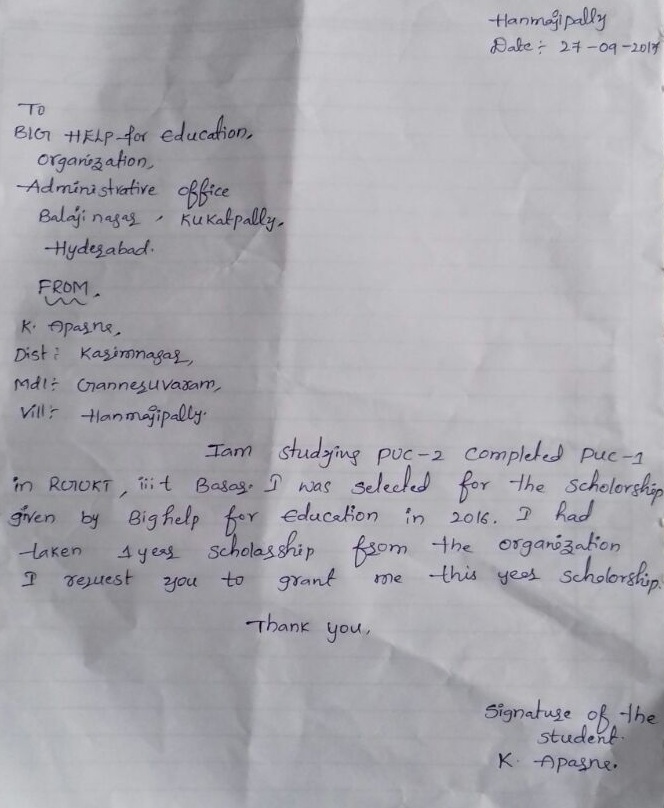 Hanmajipally
Date :- 27-09-2017
To
BIG HELP for education,
organization,
Administrative office
Balaji nagar, Kukatpally,
Hyderabad.
FROM,
K. Aparne,
Dist : Karimnagar,
Mdl :- Ganneruvaram,
Vill :- Hanmajipally.
Iam studying PUC-2 completed PUC-1
in RGUKT, iiit Basar. I was selected for the scholorship
given by Bighelp for education in 2016. I had
taken 1 year scholarship from the organization
I request you to grant me this year scholorship.
Thank you,
Signature of the
student.
K. Aparne.